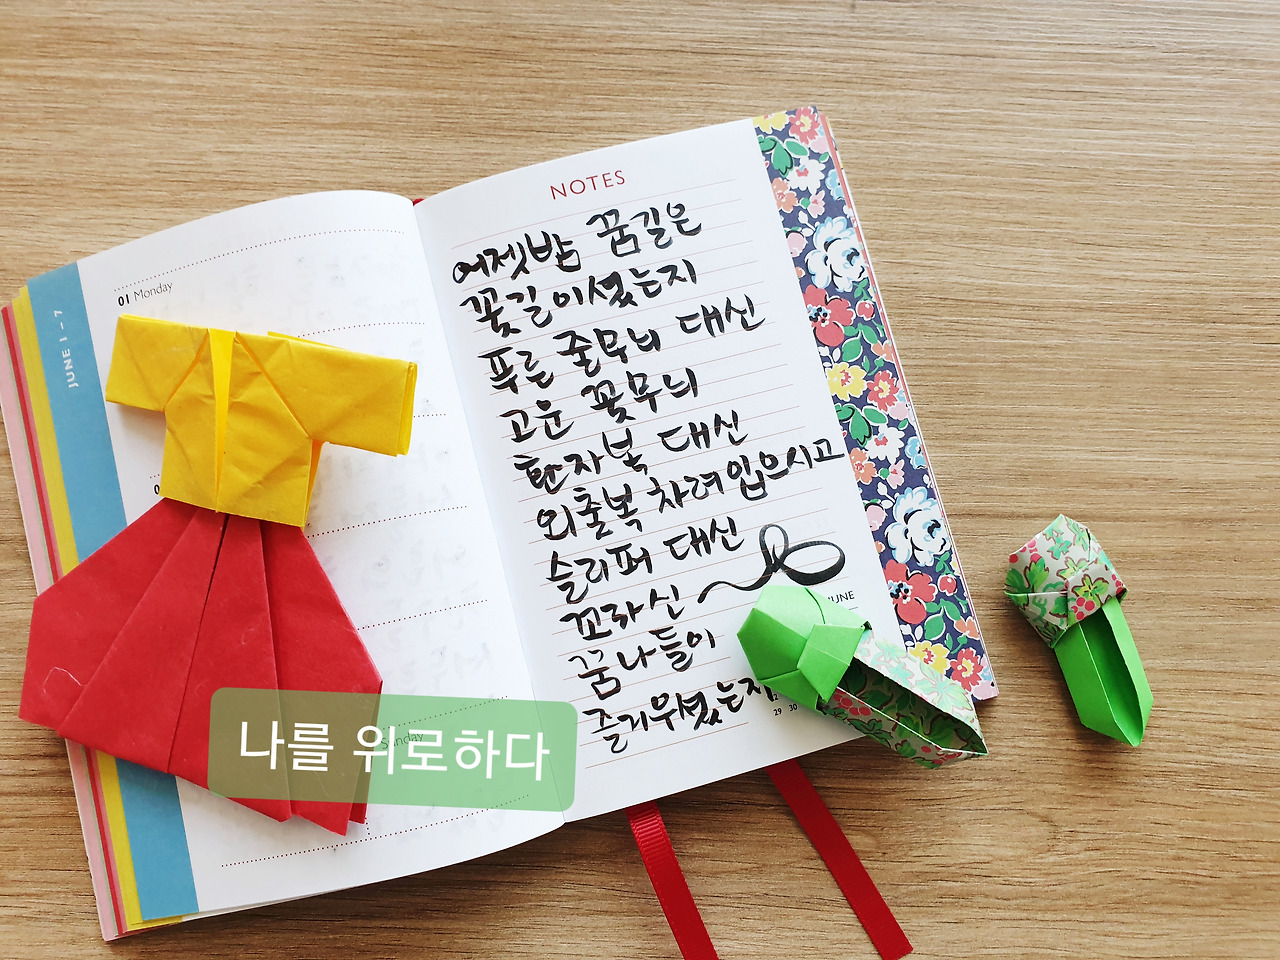 JUNE 1 - 7
01 Monday
0
Sunday
NOTES
어젯밤 꿈길은
꽃길이셨는지
푸른 줄무늬 대신
고운 꽃무늬
환자복 대신
외출복 차려입으시고
슬리퍼 대신
꼬까신
꿈나들이
즐거우셨는지
JUNE
29 30
나를 위로하다